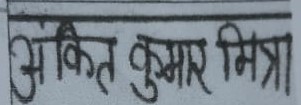 अंकित कुमार मित्रा